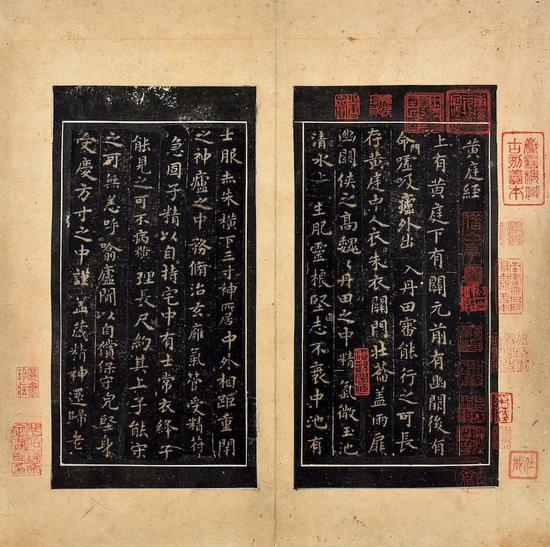 黄庭經
上有黄庭下有關元前有幽闕後有
命噓吸廬外出入丹田審能行之可長
存黄庭中人衣朱衣關門壯籥蓋兩扉
幽闕俠之高魏〻丹田之中精氣微玉池
清水上生肥靈根堅志不衰中池有
士服赤朱横下三寸神所居中外相距重閉
之神廬之中務脩治玄膺氣管受精符
急固子精以自持宅中有士常衣絳子
能見之可不病横理長尺約其上子能守
之可無恙呼噏廬間以自償保守完堅身
受慶方寸之中謹蓋藏精神還歸老
古刻善本